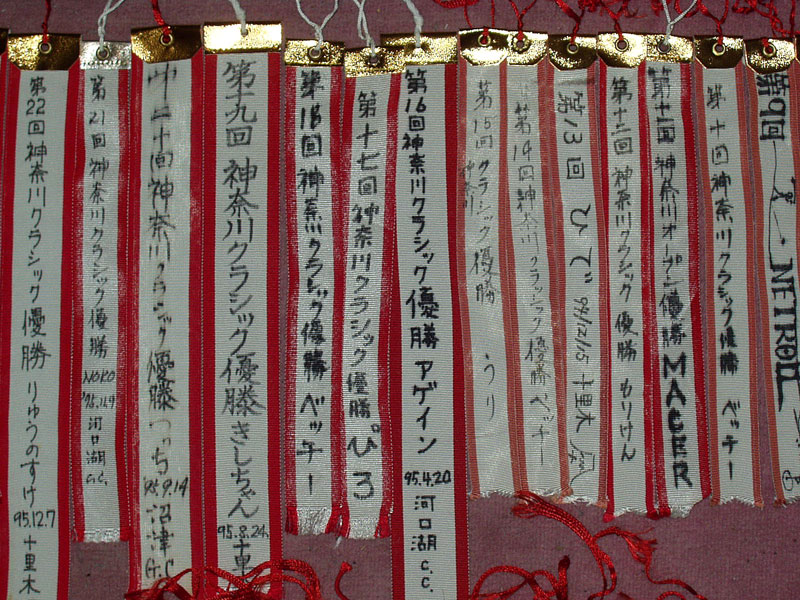 第22回神奈川クラシック優勝 りゅうのすけ
95.12.7 十里木
第21回神奈川クラシック優勝 NOKO
河口湖 G.C.
中二十回神奈川クラシック優勝 つっち
95.9.14 沼津
G.C
第十九回 神奈川クラシック優勝 きしちゃん
95.8.24. 十里
第18回神奈川クラシック優勝 ベッチー
第十七回神奈川クラシック優勝 ぴろ
第16回神奈川クラシック優勝 アゲイン
95.4.20 河口湖 C.C.
第15回クラシック優勝 うり
神奈川
第14回神奈川クラシック優勝 ベッチー
第13回 ひで 94/12/15 十里木
第十二回神奈川クラシック優勝 もりけん
第十一回神奈川オープン優勝 MACER
第十回神奈川クラシック優勝 ベッチー
第9回